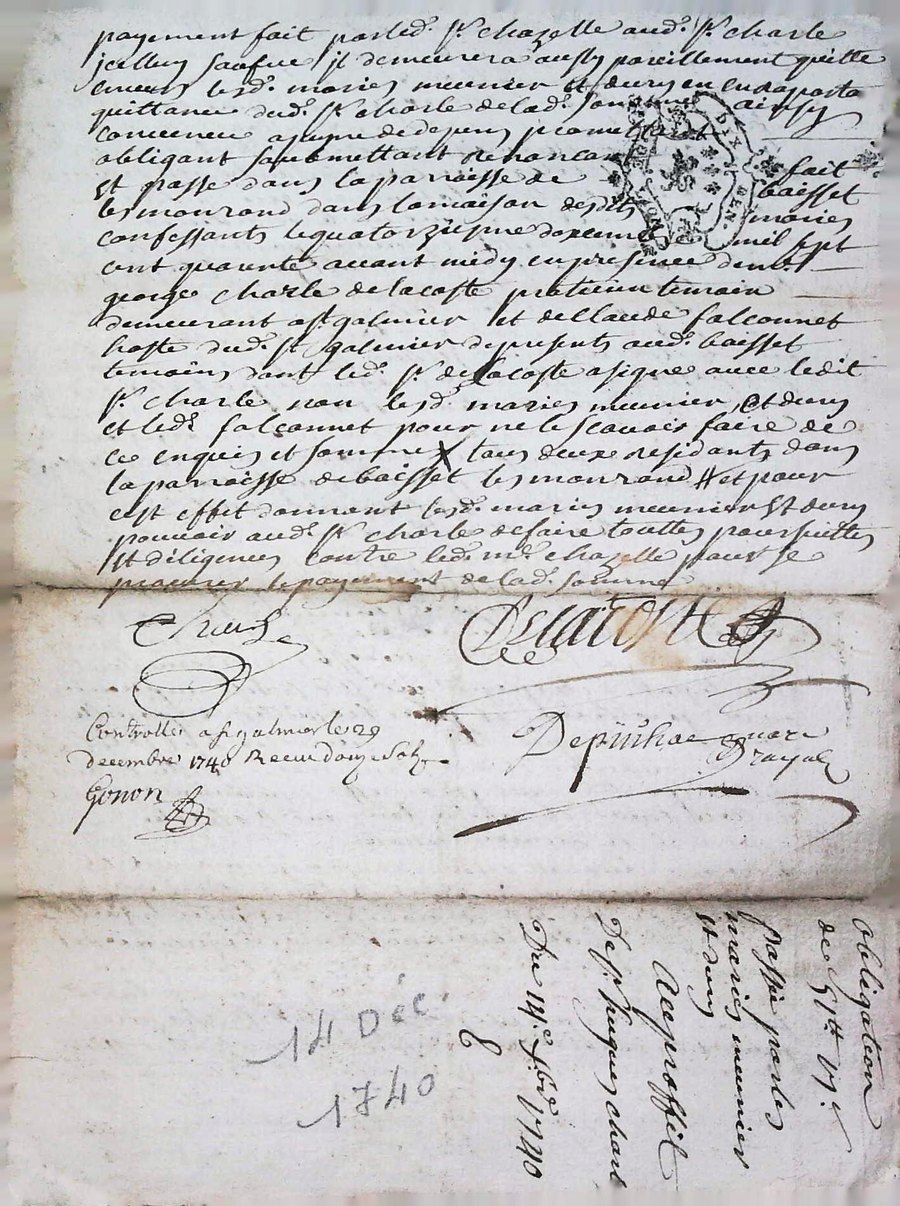 payement fait par led. Sr. chazelle aud. Sr. charle
jcelluy saufue jl demeurera aussy pareillement quitte
enuers lesd. maries meunier et dury en en raporta
quittance dud. Sr. charle de lad. somme ainssy
conuenu a peyne de depens promettant
obligant soubmettant renoncant fait
Et passe dans la paroisse de baisset
les monrond dans la maison desdits maries
confessants le quatorzieme decembre mil sept
cent quarente auant midy en presence de mr.
george charle de lacoste praticien temoin
demeurant a st galmier et de Claude falconnet
hoste dud. st galmier de presents aud. baisset
temoins dont led. Sr. de lacoste a signe auec ledit
Sr. charle non lesd. maries meunier et dury
et led. falconnet pour ne le scauoir faire de
ce enquis et somme X tous deux residants dans
la paroisse de baisset les monrond # et pour
cest effet donnent lesd. maries meunier Et dury
pouuoir aud. Sr. charle de faire touttes poursuittes
Et diligences contre led. me. chazelle pour se
procurer le payement de lad. somme
Delacoste
Controlle a st galmier le 29
decembre 1740 Receu douze sols
Gonon
Depinhac
royal
DIX DEN.
obligation
de 51tt
passée par les
maries meunier
Et dury
Au proffit
De Sr. hugues charle
Du 14e Xbre 1740
8
14 Déc.
1740